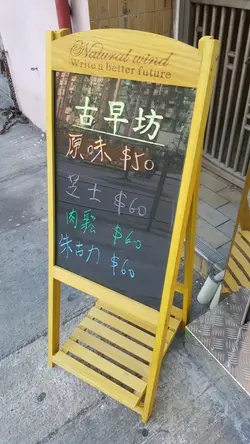 Natural wind
Write a better future
古早坊
原味 $50
芝士 $60
肉鬆 $60
朱古力 $60